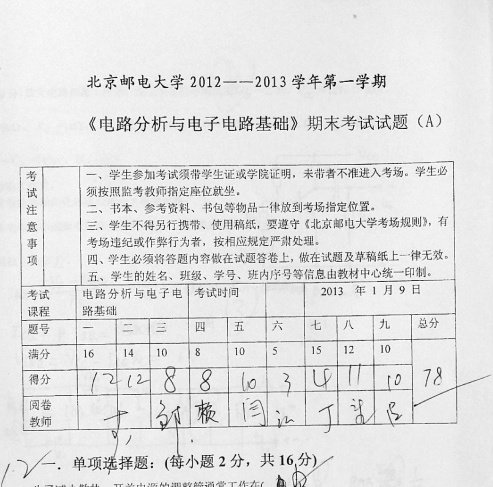 北京邮电大学2012——2013学年第一学期
《电路分析与电子电路基础》期末考试试题（A）
考试注意事项
一、学生参加考试须带学生证或学院证明，未带者不准进入考场。学生必
须按照监考教师指定座位就坐。
二、书本、参考资料、书包等物品一律放到考场指定位置。
三、学生不得另行携带、使用稿纸，要遵守《北京邮电大学考场规则》，有
考场违纪或作弊行为者，按相应规定严肃处理。
四、学生必须将答题内容做在试题答卷上，做在试题及草稿纸上一律无效。
五、学生的姓名、班级、学号、班内序号等信息由教材中心统一印制。
考试课程 电路分析与电子电路基础 考试时间 2013 年 1 月 9 日
题号 一 二 三 四 五 六 七 八 九 总分
满分 16 14 10 8 10 5 15 12 10
得分 12 12 8 8 10 3 4 11 10 78
阅卷教师 邹 赖 闫 江 丁
12 一．单项选择题：（每小题 2 分，共 16 分）
开关电源的调整管通常工作在(